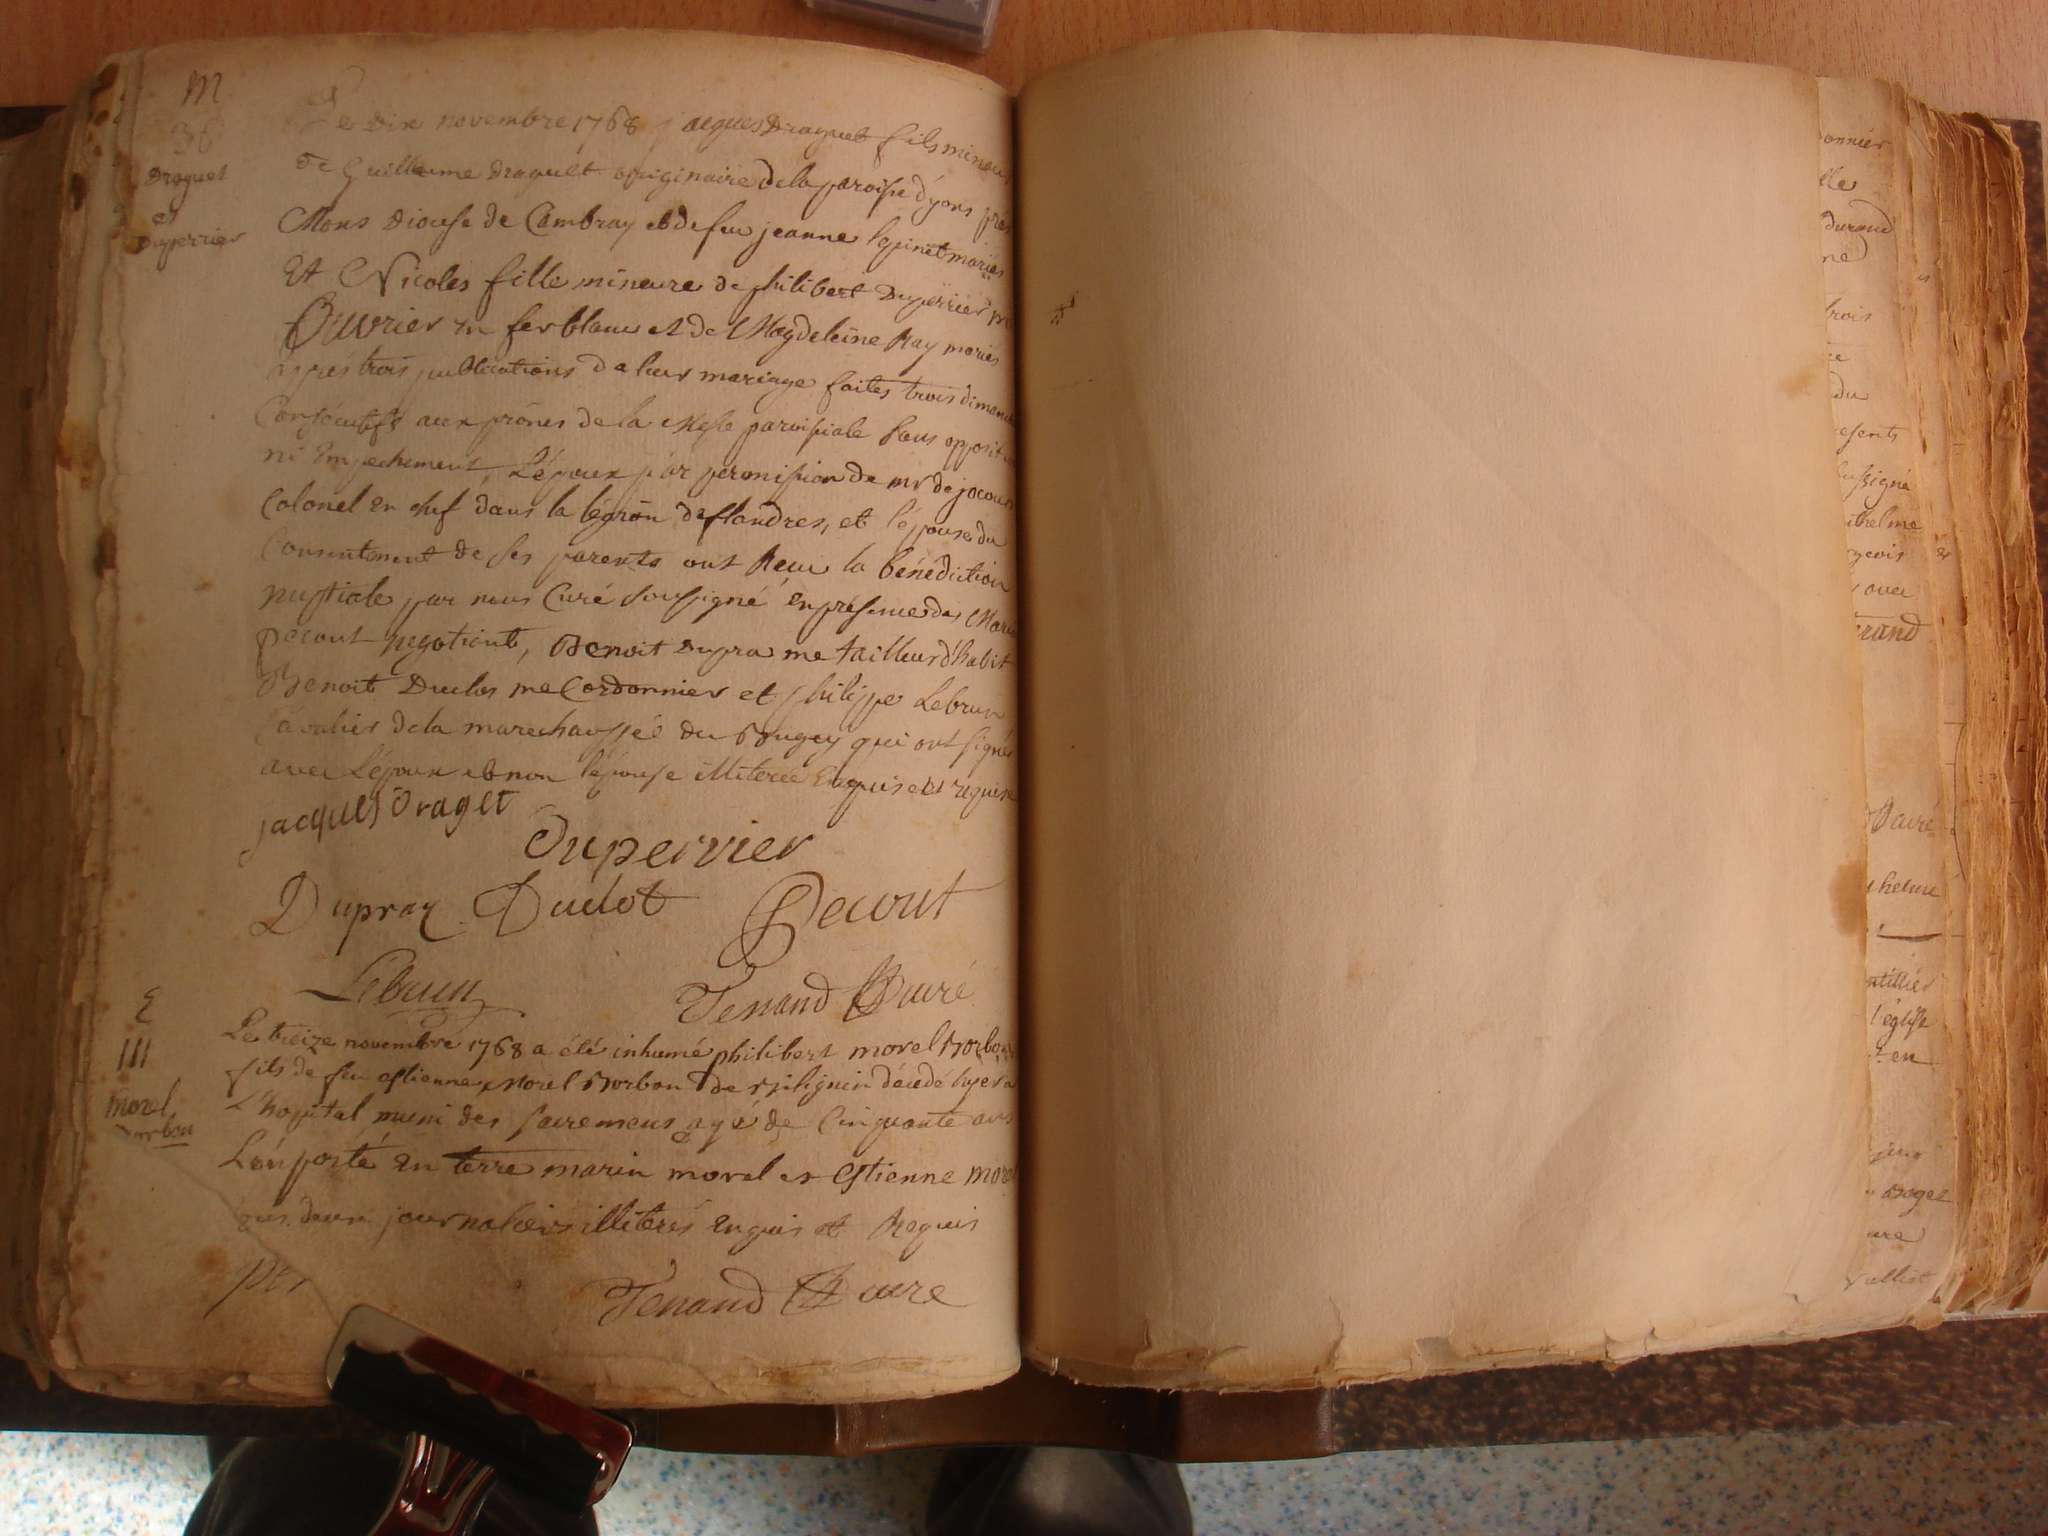 M
36
Draguet
et
Duperrier
Le dix novembre 1768 jacques Draguet fils mineur
de Guillaume Draguet originaire de la paroisse d'yons près
Mons Diocese de Cambray et de feu jeanne lepinet mariés
Et Nicoles fille mineure de philibert Duperrier me
Ouvrier en fer blanc et de Magdeleine Ray mariés
après trois publications de leur mariage faites trois dimanches
Consécutifs aux prônes de la Messe paroissiale sans opposition
ni Empechement, L'époux par permission de mr de jocourt
Colonel en chef dans la légion de flandres, et l'épouse du
Consentement de ses parents ont Receu la bénédiction
nuptiale par nous Curé soussigné en présence de Marin
Decout negotiant, Benoit Dupra me tailleur d'habit
Benoit Duclos me Cordonnier et philippe Lebrun
Cavalier de la marechaussée du Bugey qui ont signé
avec L'époux et non l'épouse illiterée Enquis et requise
jacques Draget
Duperrier
Dupraz Duclot Decout
Lebrun
Tenand Curé
E
111
Morel
Borbon
Le treize novembre 1768 a été inhumé philibert morel Borbon
fils de feu estienne Morel Borbon de décédé hyer a
L'hopital muni des sacremens agé de Cinquante ans
L'on porté en terre marin morel et Estienne Morel
tous deux journaliers illiterés enquis et Requis
Tenand Curé
onnier
lle
durand
ne
trois
du
esents
soussigné
thelme
rgeois
avec
rand
Curé
thelme
l'église
en
Draget